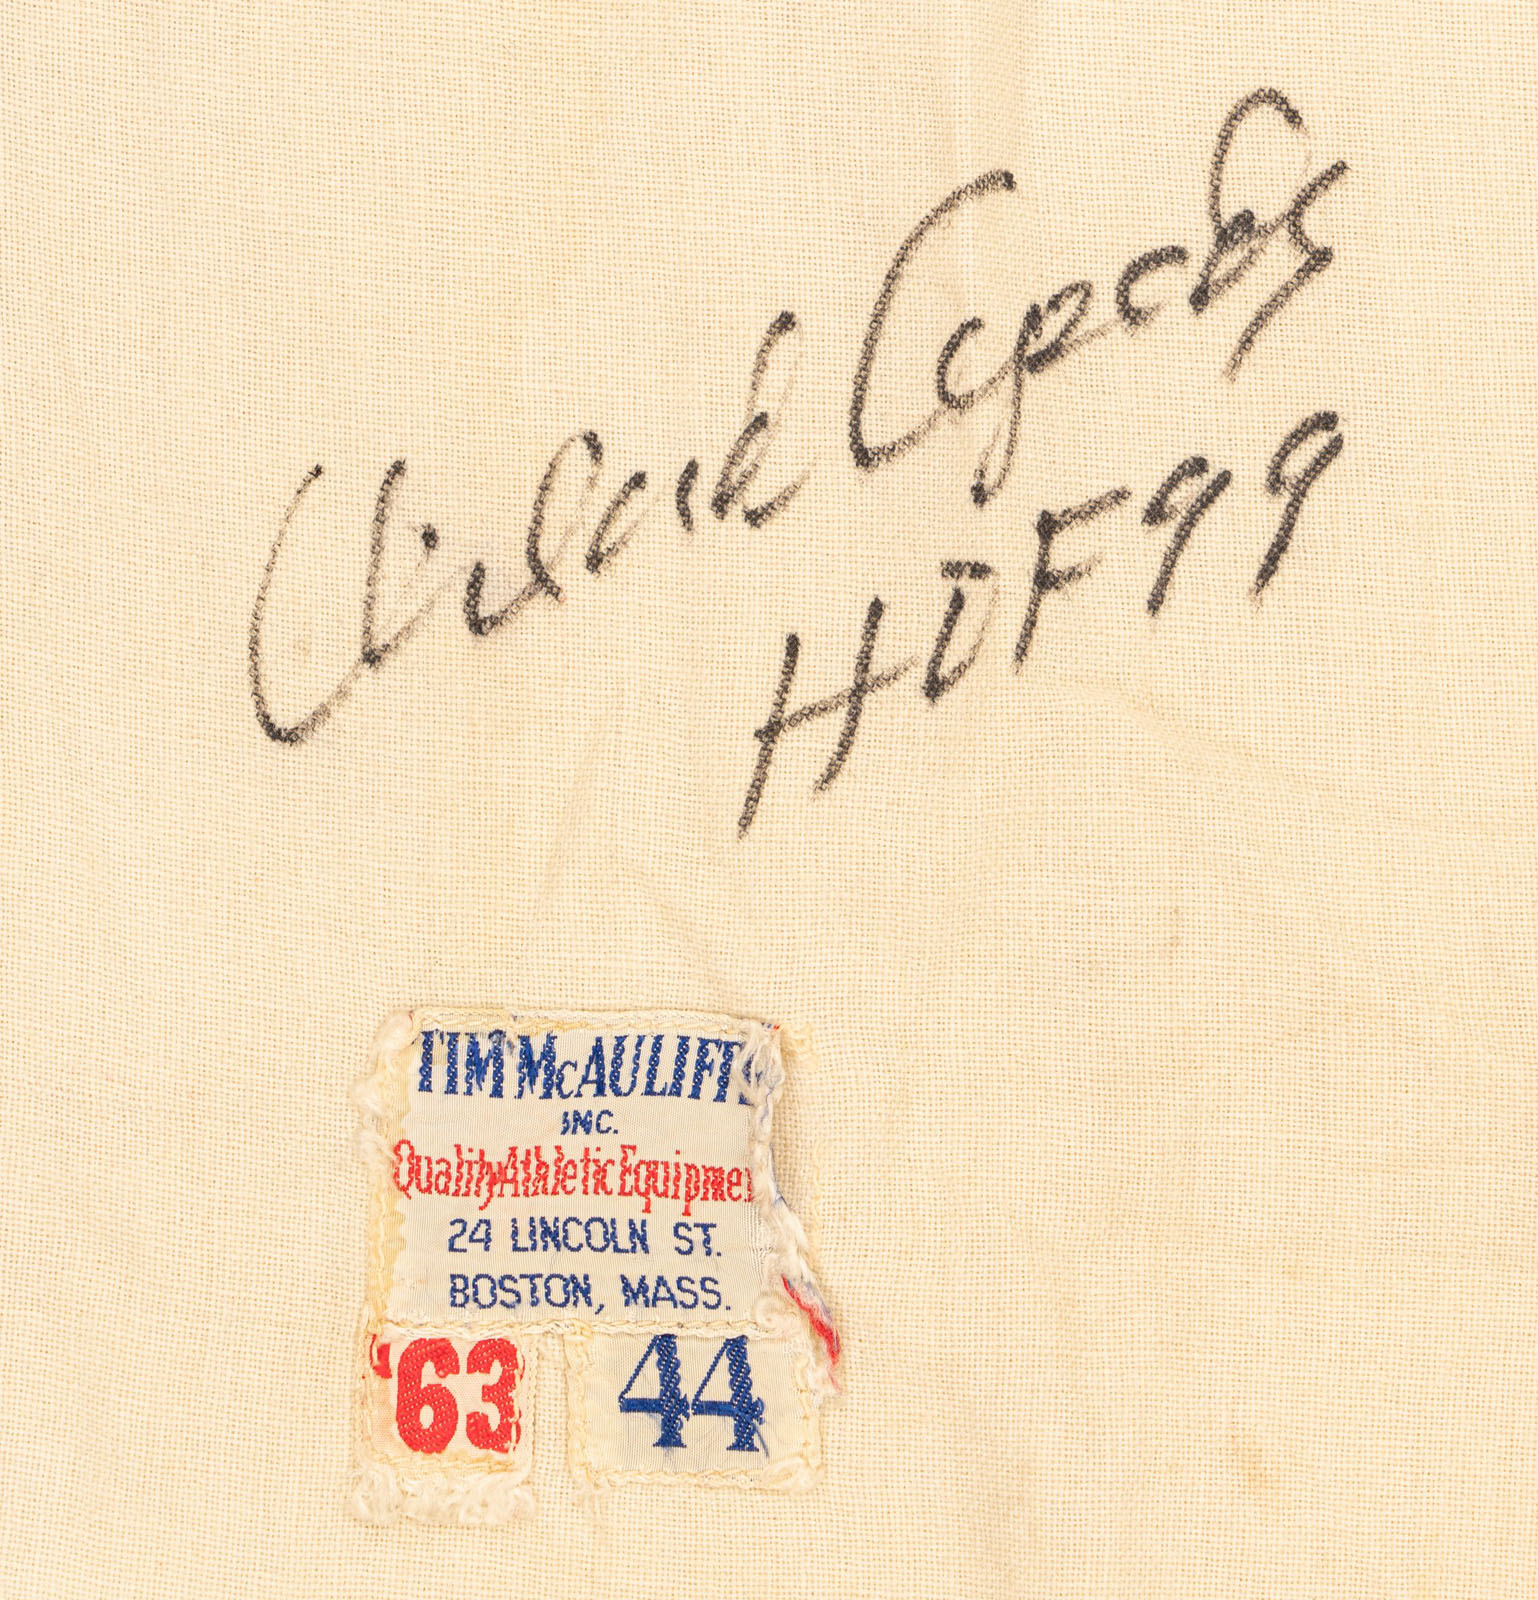 Orlando Cepeda
HOF 99
TIM McAULIFFE
INC.
Quality Athletic Equipmen
24 LINCOLN ST.
BOSTON, MASS.
'63 44